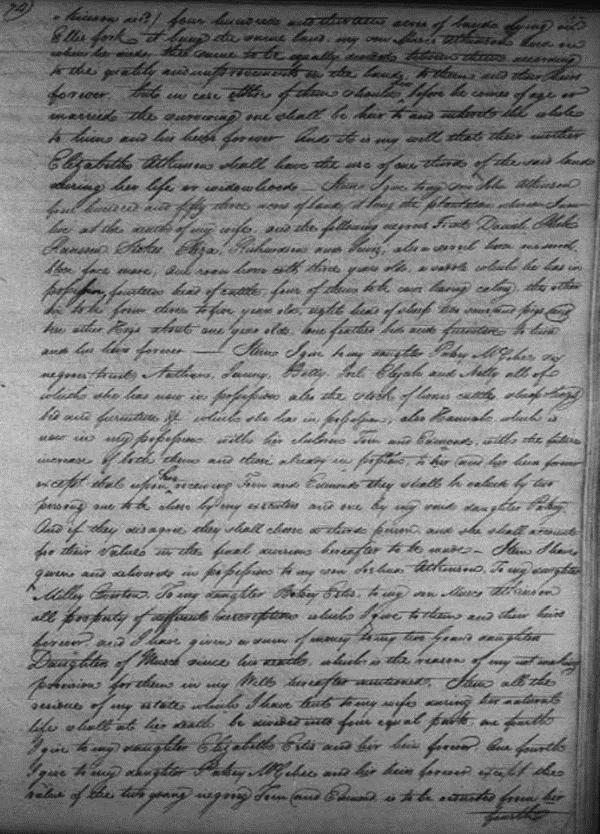 four hundred and thirteen acres of land lying on
Ellis fork it being the same land my son Muse Atkinson lived on
when he died the same to be equally divided between them according
to the quality and improvements on the land, to them and their heirs
forever. but in case either of them should before he comes of age or
married the surviving one shall be heir to and inherit the whole
to him and his heirs forever And it is my will that their mother
Elizabeth Atkinson shall have the use of one third of the said land
during her life or widowhood — Item I give to my son John Atkinson
four hundred and fifty three acres of land, it being the plantation whereon I now
live at the death of my wife, and the following negroes Daniel
Ransom Stokes Eliza, Richardson and also a sorrel horn
face mare, one roan horse colt three years old, a which he has in
possession fourteen head of cattle, four of them to be cows having calves, the other
ten to be from three to five years old, eight head of sheep two sows and pigs and
ten other Hogs about one year old, one feather bed and furniture to him
and his heirs forever — Item I give to my daughter Patsey McGehee six
negroes Nathan, Betty, Elijah and Nelly all of
which she has now in possession also the stock of horses cattle, sheep hogs
bed and furniture &c which she has in possession, also Hannah which is
now in my possession with her children Tom and Edmond, with the future
increase of both them and those already in possession, to her and her heirs forever
except that upon her receiving Tom and Edmond they shall be valued by two
persons one to be chose by my executors and one by my said daughter Patsey,
And if they disagree they shall choose a third person, and she shall account
for their value in the final division hereafter to be made — Item I have
given and delivered in possession to my son Joshua Atkinson, To my daughter
Milley To my daughter Betsey Estis, to my son Muse Atkinson
all property of different descriptions which I give to them and their heirs
forever, and I have given a sum of money to my two grand daughters
Daughters of Muse since his death, which is the reason of my not making
provision for them in my Will hereafter mentioned, Item all the
residue of my estate which I have lent to my wife during her natural
life shall at her death be divided into four equal parts, one fourth
I give to my daughter Elizabeth Estis and her heirs forever One fourth
I give to my daughter Patsey McGehee and her heirs forever except the
value of the two young negroes Tom and Edmond is to be deducted from her
fourth